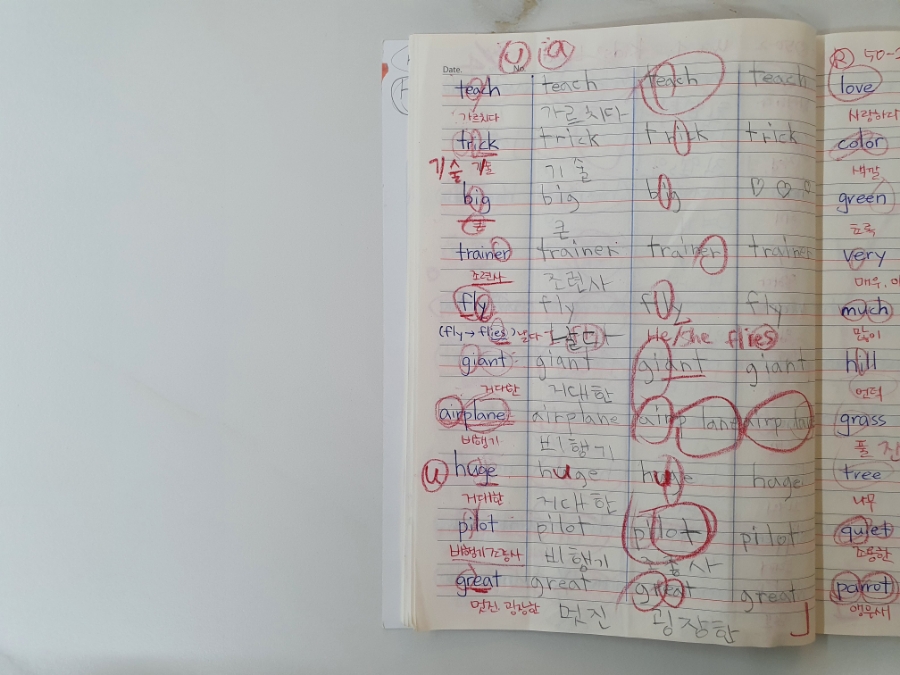 U a
Date. No.
teach teach teach teach
가르치다 가르치다
trick trick trick trick
기술 기술 기술
big big big
큰 큰
trainer trainer trainer trainer
조련사 조련사
fly fly fly fly
(fly → flies) 날다 날다 He/she flies
giant giant giant giant
거대한 거대한
airplane airplane airplane airplane
비행기 비행기
u huge huge huge hage
거대한 거대한
pilot pilot pilot pilot
비행기조종사 비행기 조종사
great great great great
멋진, 굉장한 멋진 굉장한
R
love
사랑하다
color
색깔
green
초록
very
매우,
much
많이
hill
언덕
grass
풀
tree
나무
quiet
조용한
parrot
앵무새